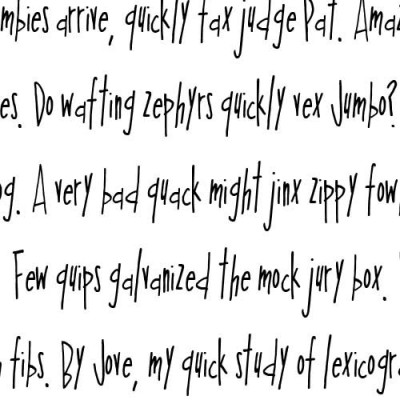 mbies arrive, quickly fax judge Pat. Amaz
es. Do wafting zephyrs quickly vex Jumbo?
og. A very bad quack might jinx zippy fow
Few quips galvanized the mock jury box.
fibs. By Jove, my quick study of lexicogra